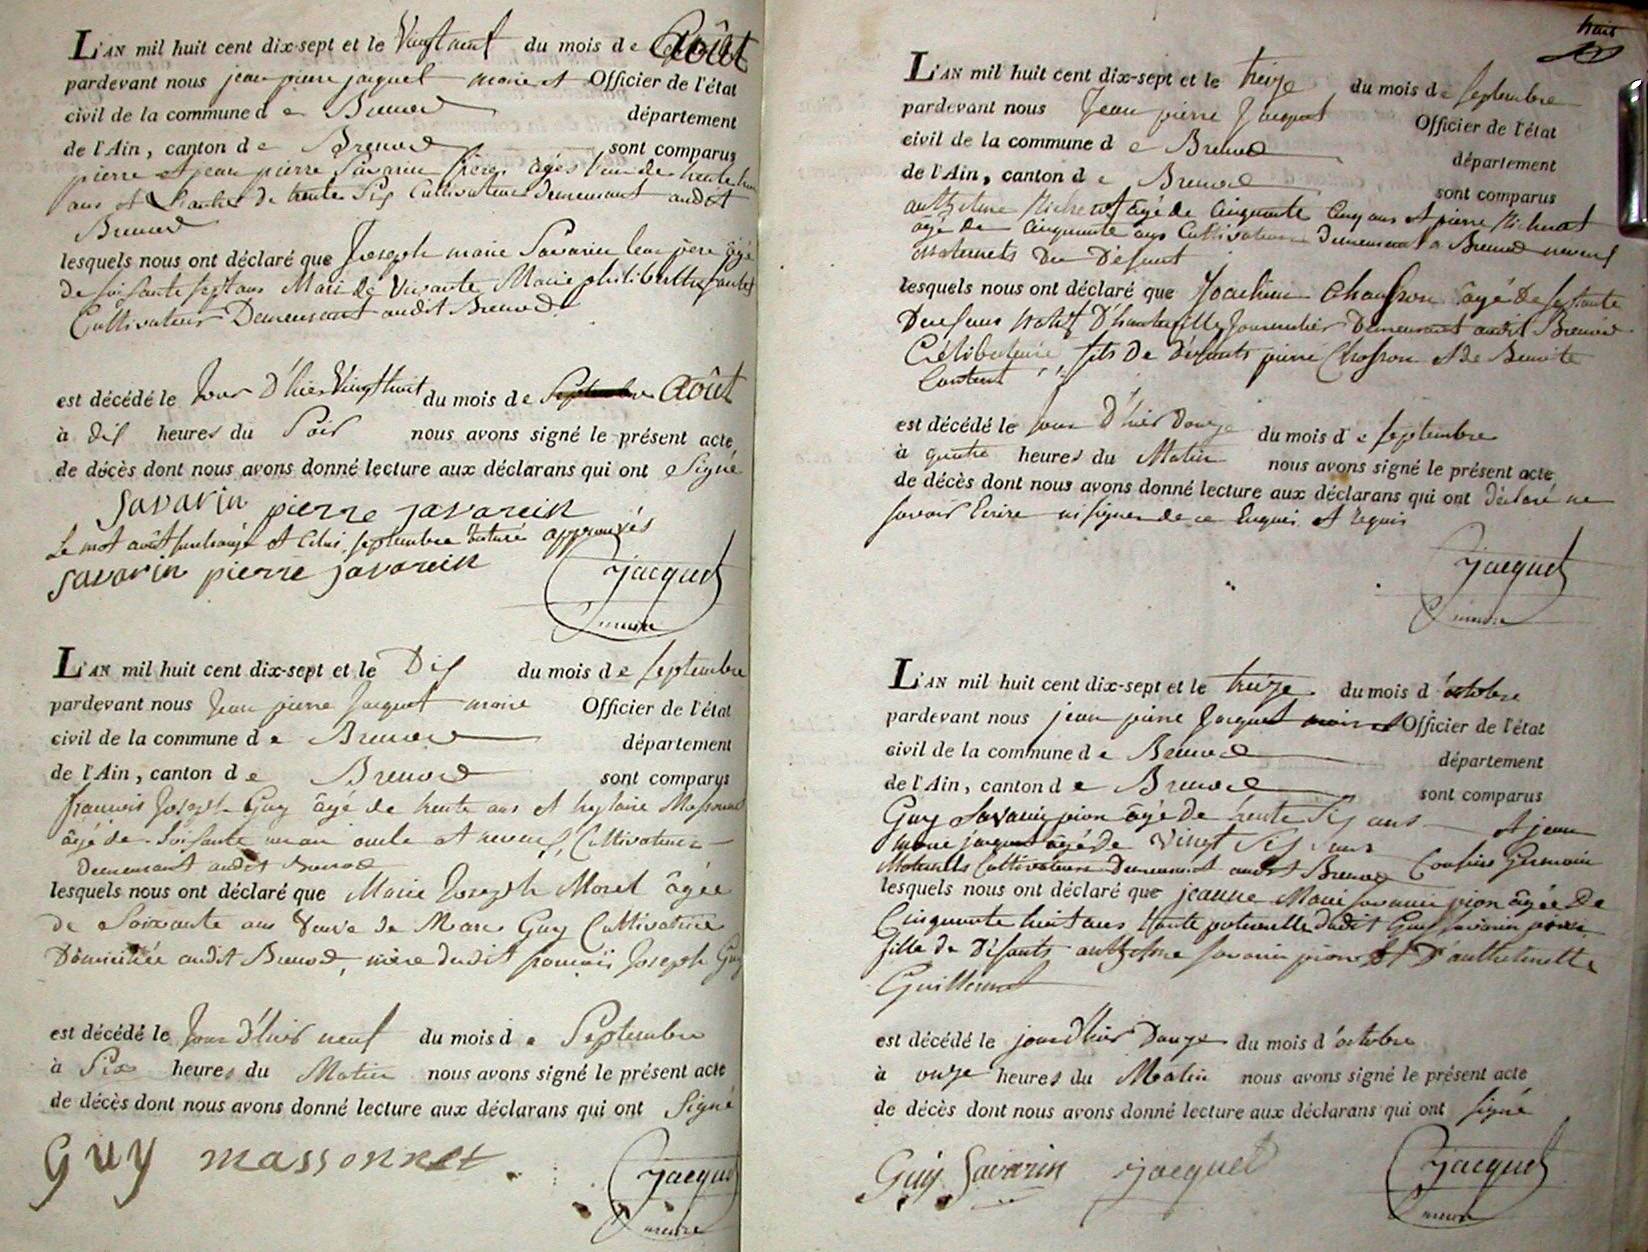 L'AN mil huit cent dix-sept et le Vingt neuf du mois de Août
pardevant nous jean pierre jacquet maire et Officier de l'état
civil de la commune de Brenod département
de l'Ain, canton de Brenod sont comparus
pierre et jean pierre Savarin frères âgés l'un de trente
ans et l'autre de trente Six Cultivateurs Demeurant audit
Brenod
lesquels nous ont déclaré que Joseph marie Savarin leur père âgé
de soixante sept ans Mari de Vivante Marie philiberthe
Cultivateur Demeurant audit Brenod
est décédé le Jour D'hier Vingt huit du mois de Septembre Août
à dix heures du Soir nous avons signé le présent acte
de décès dont nous avons donné lecture aux déclarans qui ont Signé
Savarin pierre savarein
Le mot août surchargé et Celui septembre raturé approuvés
savarin pierre savarein Jacquet
maire
L'AN mil huit cent dix-sept et le Dix du mois de septembre
pardevant nous Jean pierre Jacquet maire Officier de l'état
civil de la commune de Brenod département
de l'Ain, canton de Brenod sont comparus
francois Joseph Guy âgé de trente ans et hylaire Massonnet
âgé de Soixante un an oncle et neveu, Cultivateurs
Demeurant audit Brenod
lesquels nous ont déclaré que Marie Joseph Morel âgée
de Soixante ans Veuve de Marc Guy Cultivatrice
Domiciliée audit Brenod, mère dudit francois Joseph Guy
est décédé le Jour d'hier neuf du mois de Septembre
à Six heures du Matin nous avons signé le présent acte
de décès dont nous avons donné lecture aux déclarans qui ont Signé
Guy massonnet Jacquet
maire
trois
L'AN mil huit cent dix-sept et le treize du mois de septembre
pardevant nous Jean pierre Jacquet Officier de l'état
civil de la commune de Brenod département
de l'Ain, canton de Brenod sont comparus
anthelme Richerot âgé de Cinquante Cinq ans et pierre Richerot
âgé de Cinquante ans Cultivateurs Demeurant a Brenod neveux
maternels Du Défunt
lesquels nous ont déclaré que Joachim Chosson âgé De septante
Deux ans natif D'hauteville Journalier Demeurant audit Brenod
Célibataire, fils de Défunts pierre Chosson et de Benoite
Content
est décédé le jour D'hier Douze du mois de septembre
à quatre heures du Matin nous avons signé le présent acte
de décès dont nous avons donné lecture aux déclarans qui ont déclaré ne
savoir Ecrire ni signer de ce Enquis et Requis
Jacquet
maire
L'AN mil huit cent dix-sept et le treize du mois d'octobre
pardevant nous jean pierre Jacquet maire et Officier de l'état
civil de la commune de Brenod département
de l'Ain, canton de Brenod sont comparus
Guy Savarin pion âgé De trente Six ans et jean
marie jacquet âgé de Vingt Six ans Cousins Germain
Maternels Cultivateurs Demeurant audit Brenod
lesquels nous ont déclaré que jeanne Marie savarin pion âgée De
Cinquante huit ans tante paternelle Dudit Guy savarin pion
fille de Défunts anthelme savarin pion et D'anthelmette
Guillermet
est décédé le jour D'hier Douze du mois d'octobre
à onze heures du Matin nous avons signé le présent acte
de décès dont nous avons donné lecture aux déclarans qui ont signé
Guy Savarin jacquet Jacquet
maire